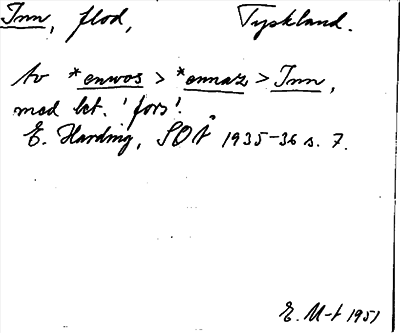 Inn, flod, Tyskland.
av *enwos > *ennaz > Inn,
med bet. 'fors'.
E. Harding, SOÅ 1935-36 s. 7.
E. M-t 1951